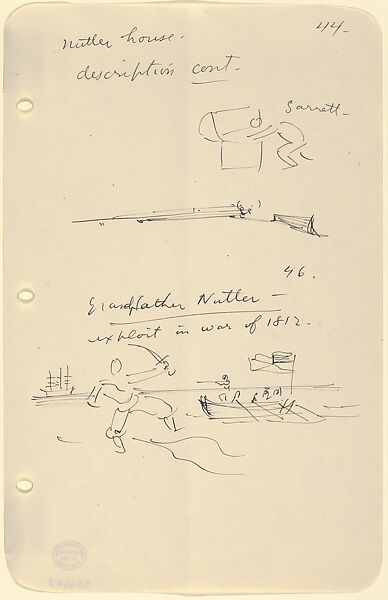 44.
Nutter house.
description cont.
Garrett.
46.
Grandfather Nutter —
exploit in war of 1812.